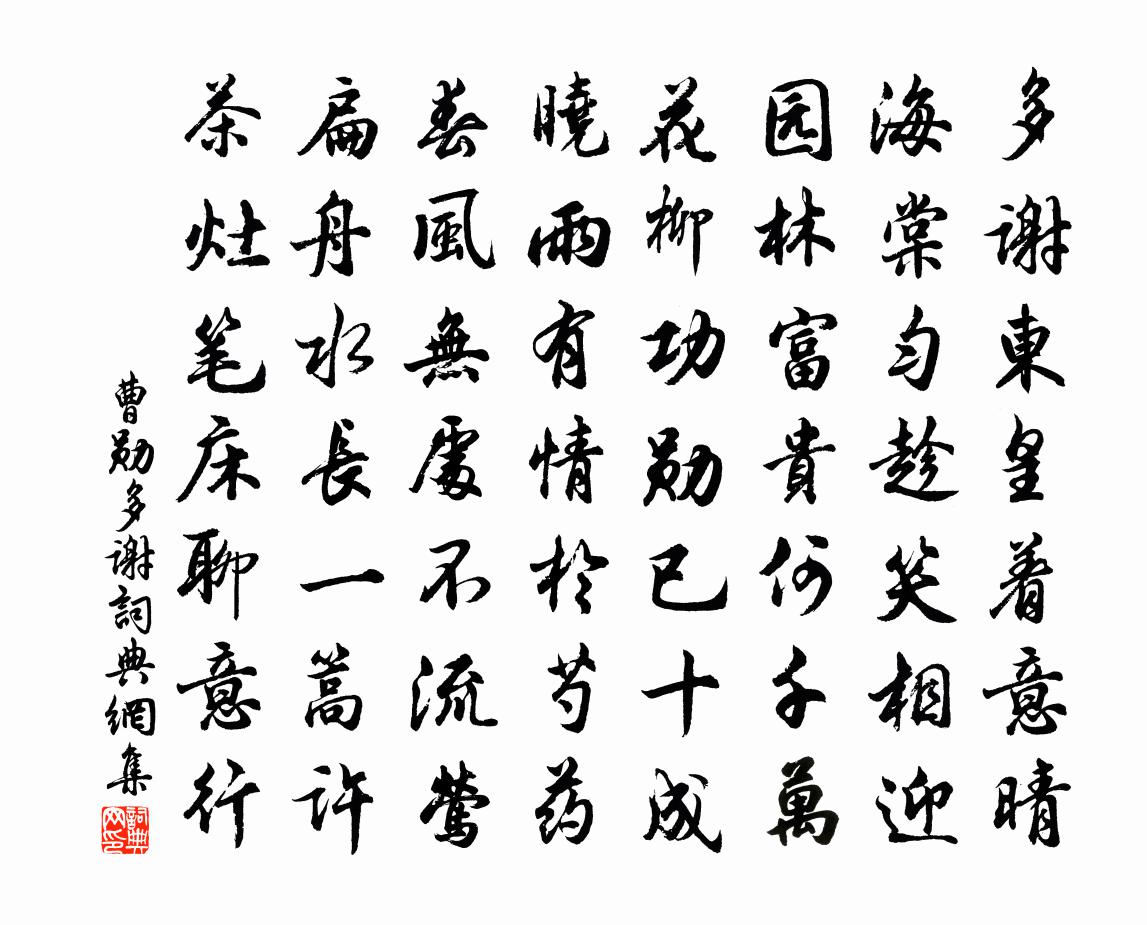 多謝東皇着意晴
海棠匀趁笑相迎
园林富貴何千萬
花柳功勋已十成
曉雨有情於芍药
春風無處不流莺
扁舟水長一篙许
茶灶笔床聊意行
曹勋多谢詞典網集
詞典网印